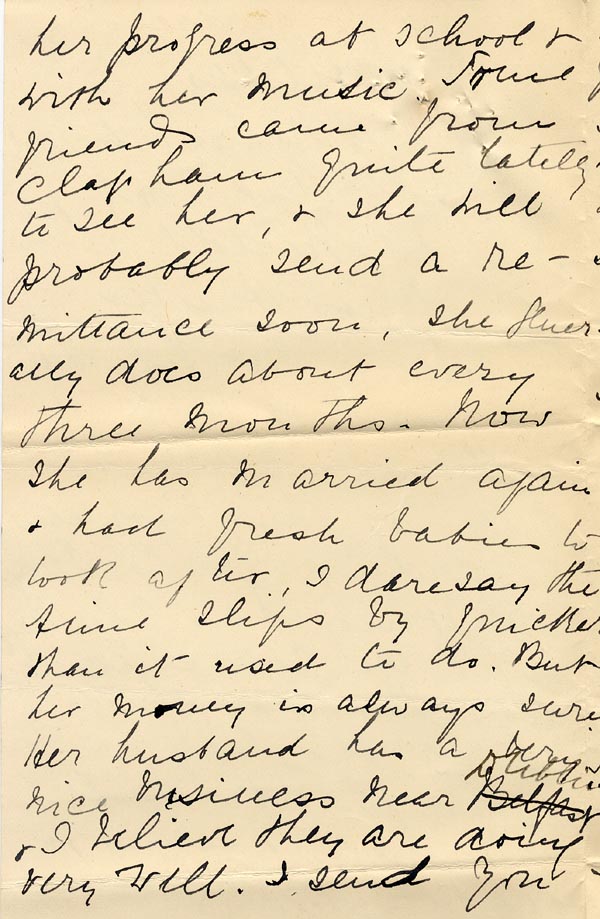 her progress at school &
with her music. Some
friends came from
Clapham quite lately
to see her, & she will
probably send a re-
mittance soon, she gener-
ally does about every
three months. Now
she has married again
& had fresh babies to
look after, I daresay the
time slips by quicker
than it used to do. But
her money is always sure
Her husband has a very
nice business near Belfast Dublin
& I believe they are doing
very well. I send you